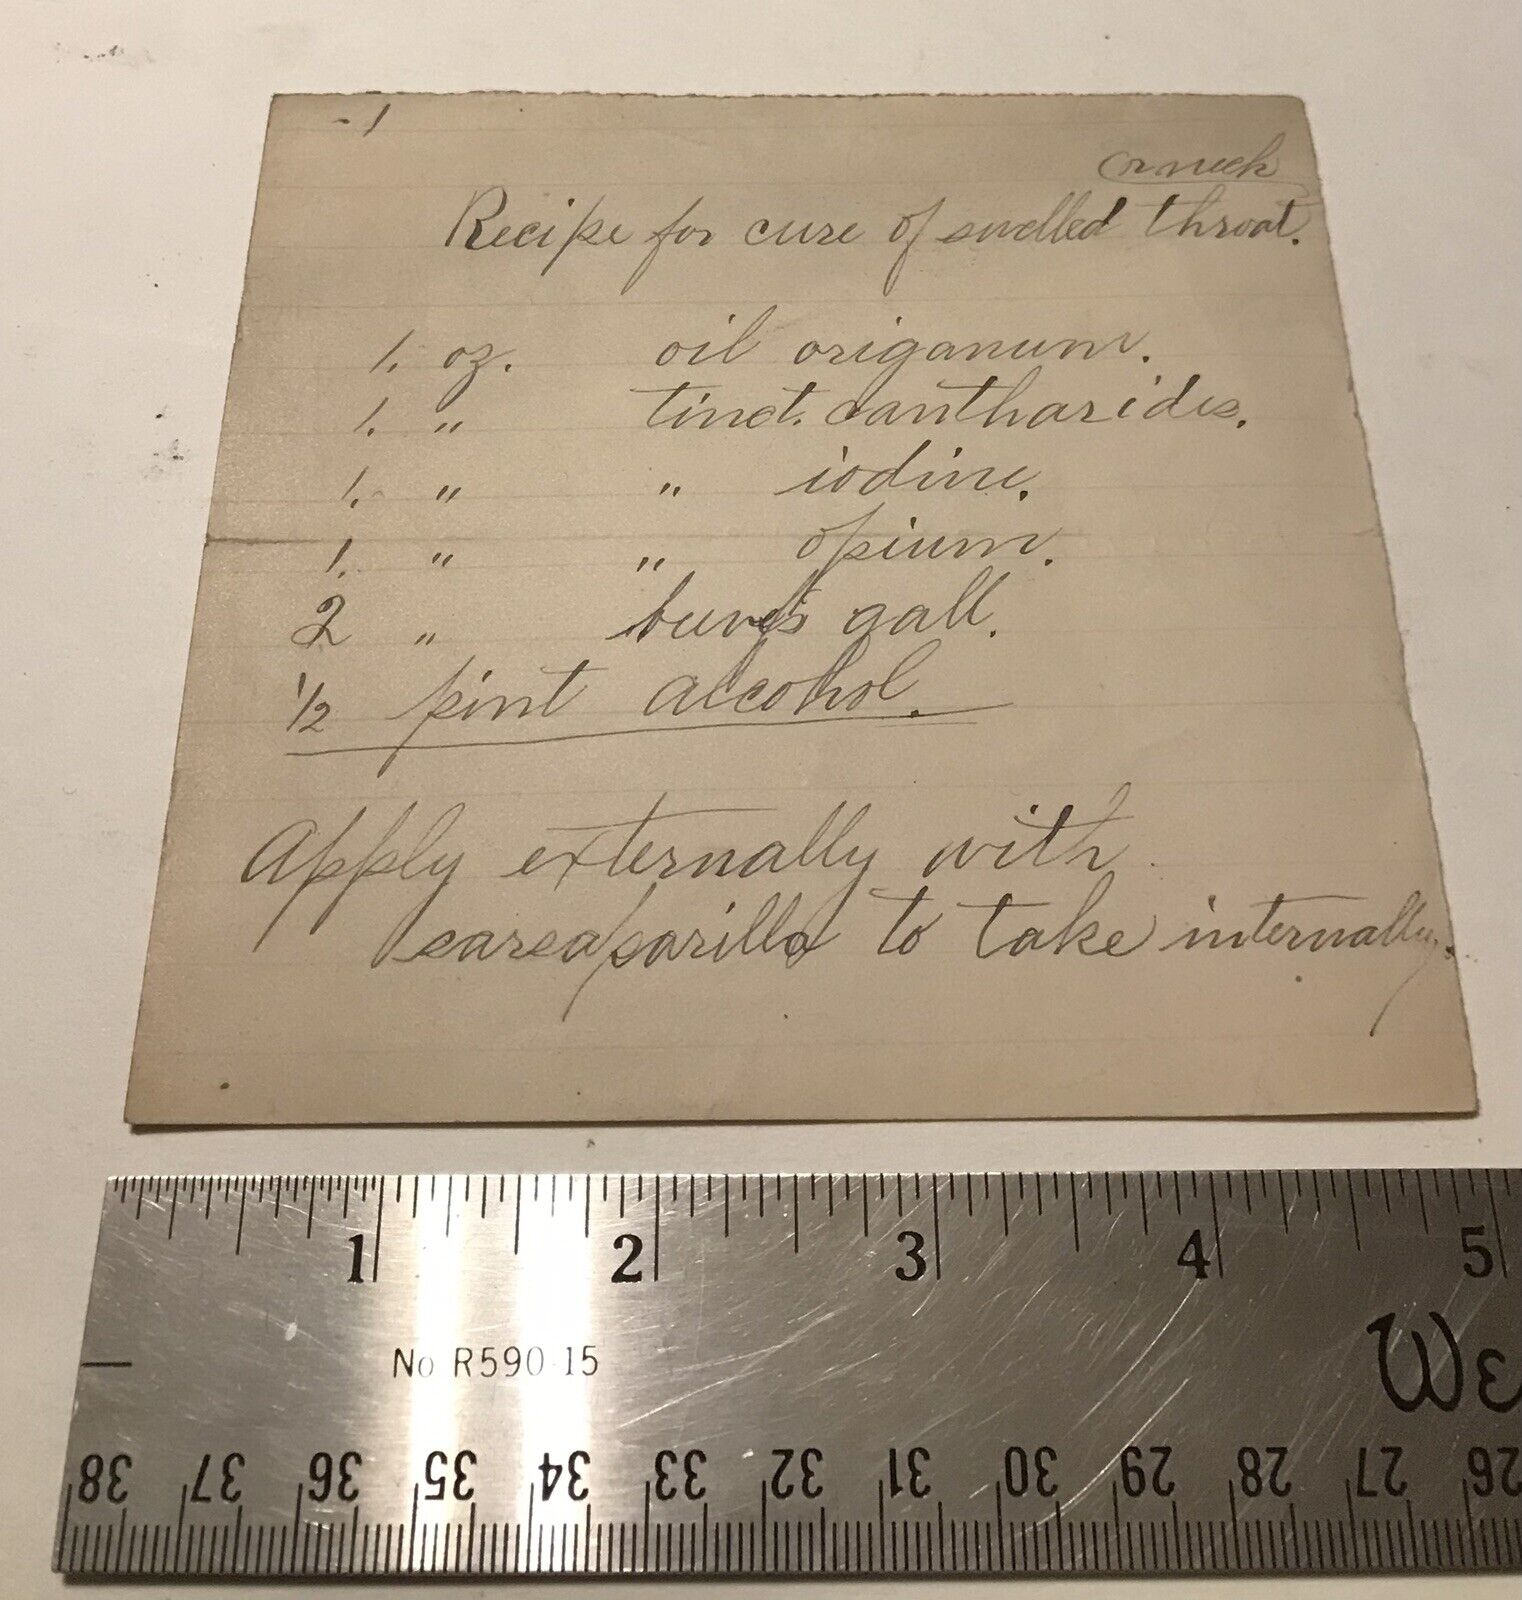 - 1
or neck
Recipe for cure of swelled throat.
1. oz. oil origanum.
1. " tinct. cantharides.
1. " " iodine.
1. " " opium.
2 " gall.
1/2 pint alcohol.
Apply externally with
sarsaparilla to take internally.
1 2 3 4 5
No R590-15
38 37 36 35 34 33 32 31 30 29 28 27 26